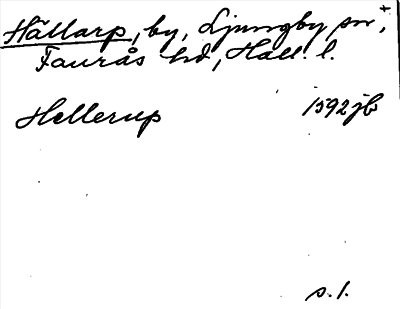 Hällarp, by, Ljungby sn, +
Faurås hd, Hall. l.
Hellerup 1592 jb
s. 1.